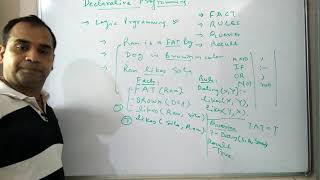 Declarative Programming
→ Logic Programming
→ FACT
→ RULES
→ Queries
→ Result
→ Ram is a FAT Boy
Dog is Brown in color
Ram likes Sita
AND ,
IF :-
OR ;
NOT
Facts
FAT (Ram)
BROWN (Dog)
① likes (Ram, Sita)
② likes (Sita, Ram)
Rule:
Dating (X, Y) :-
likes (X, Y),
likes (Y, X).
Queries
TAT = T
?- Dating (Sita, Ram)
Result
True